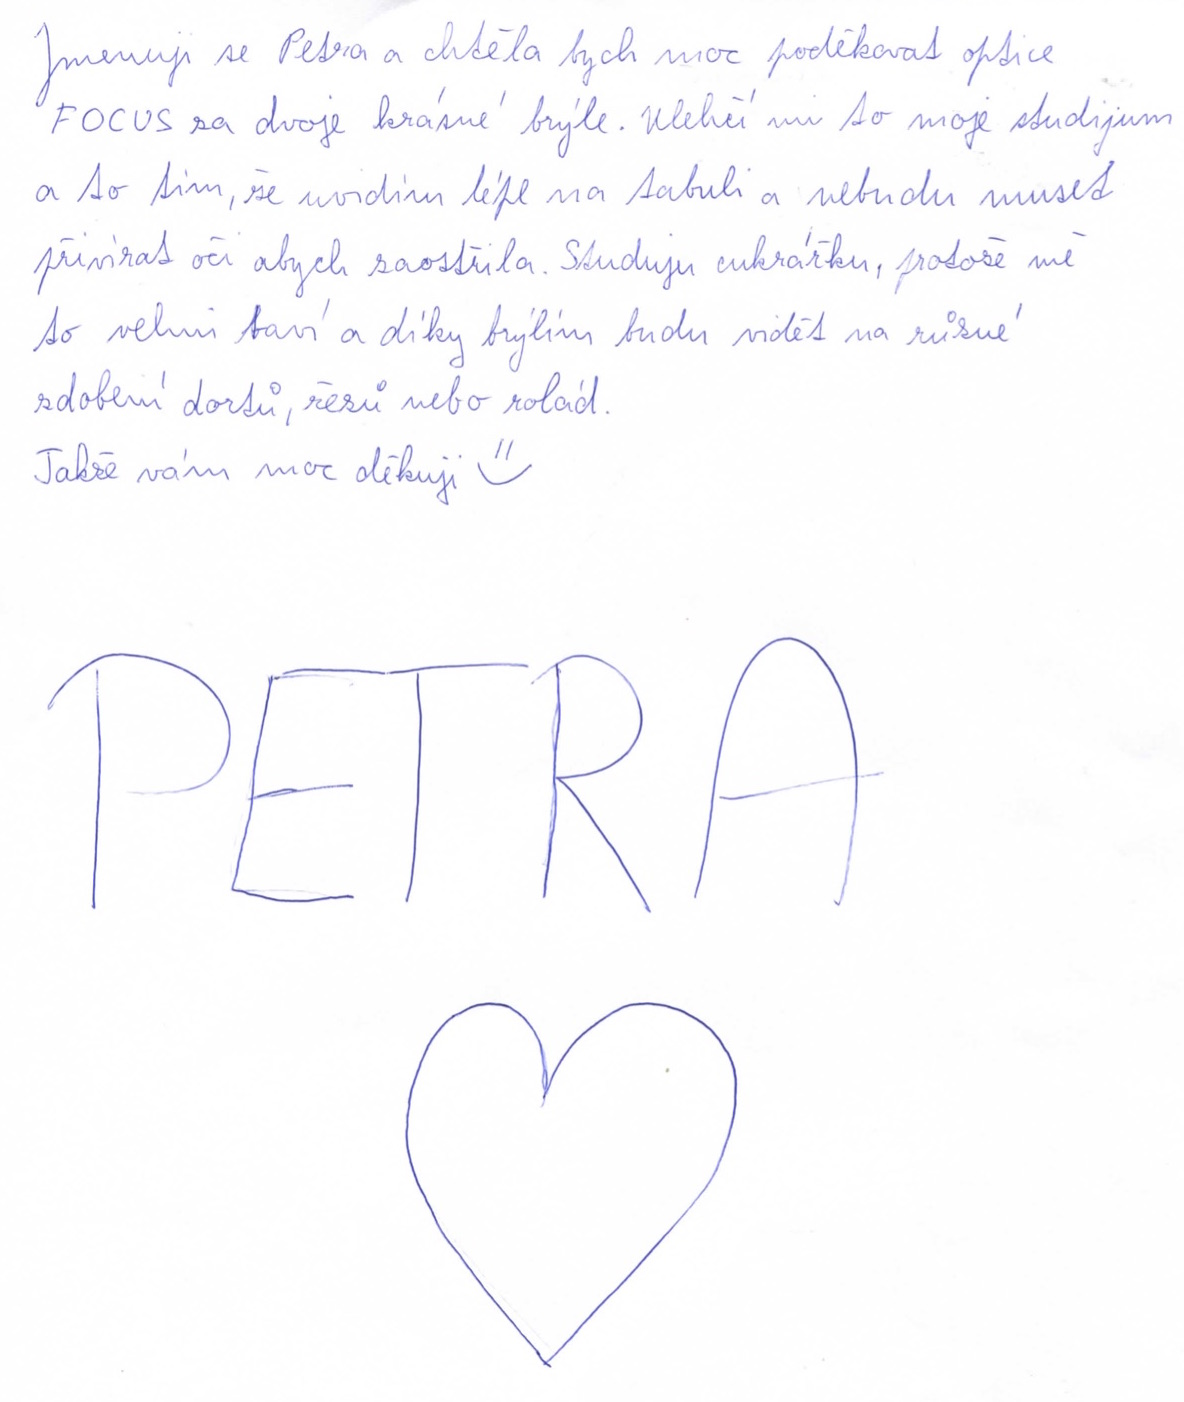 Jmenuji se Petra a chtěla bych moc poděkovat optice
FOCUS za dvoje krásné brýle. Ulehčí mi to moje studijum
a to tím, že uvidím lépe na tabuli a nebudu muset
přivírat oči abych zaostřila. Studuju cukrářku, protože mě
to velmi baví a díky brýlím budu vidět na různé
zdobení dortů, řezů nebo rolád.
Takže vám moc děkuji
PETRA